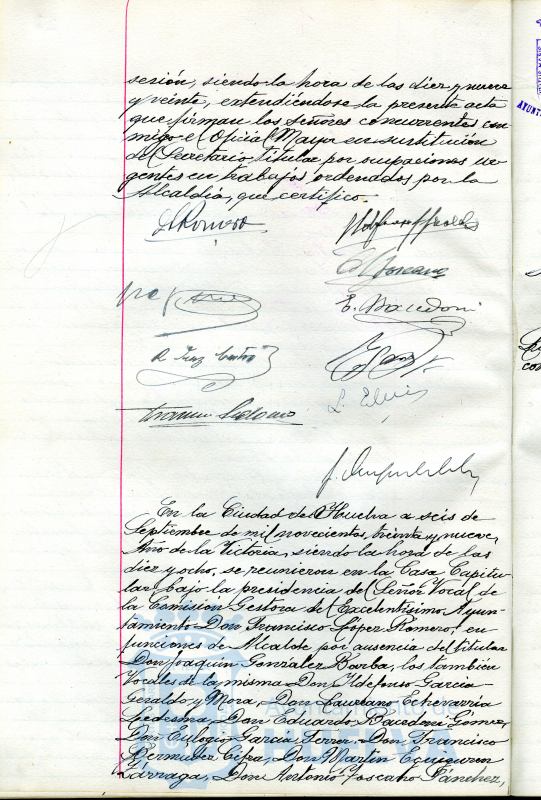 sesión, siendo la hora de las diez y nueve
y veinte, extendiéndose la presente acta
que firman los señores concurrentes con-
migo el Oficial Mayor en sustitución
del Secretario titular por ocupaciones ur-
gentes en trabajos ordenados por la
Alcaldía, que certifico.
F. L. Romero
E. Bacedoni
En la Ciudad de Huelva a seis de
Septiembre de mil novecientos treinta y nueve,
Año de la Victoria, siendo la hora de las
diez y ocho, se reunieron en la Casa Capitu-
lar, bajo la presidencia del Señor Vocal de
la Comisión Gestora del Excelentísimo Ayun-
tamiento Don Francisco López Romero, en
funciones de Alcalde por ausencia del titular
Don Joaquin González Barba, los también
Vocales de la misma Don Ildefonso Garcia
Geraldo y Mora, Don Laureano Echevarría
Ledesma, Don Eduardo Bacedoni Gómez,
Don Eulogio García Ferrer, Don Francisco
Bermudez Cifra, Don Martin Eguiguren
Zárraga, Don Antonio Toscano Sánchez,
HUELVA